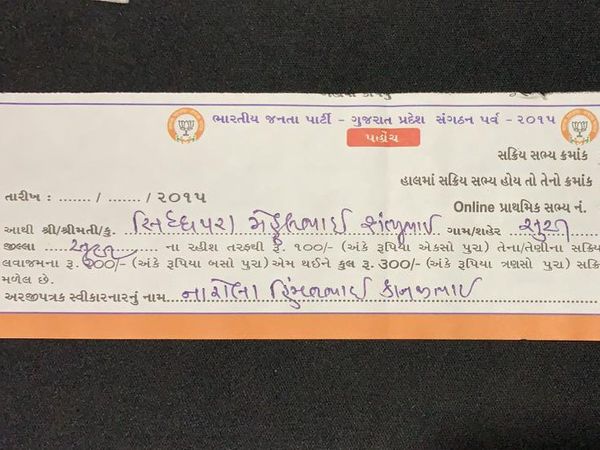 ભારતીય જનતા પાર્ટી - ગુજરાત પ્રદેશ સંગઠન પર્વ - ૨૦૧૫
પહોંચ
સક્રિય સભ્ય ક્રમાંક
હાલમાં સક્રિય સભ્ય હોય તો તેનો ક્રમાંક
તારીખ : ....... / ....... /૨૦૧૫
Online પ્રાથમિક સભ્ય નં.
આથી શ્રી/શ્રીમતી/કુ. સિધ્ધપરા મેહુલભાઇ ગામ/શહેર સુરત
જીલ્લા સુરત ના રહીશ તરફથી રૂ. ૧૦૦/- (અંકે રૂપિયા એકસો પુરા) તેના/તેણીના સક્રિ
લવાજમના રૂ. ૨૦૦/- (અંકે રૂપિયા બસો પુરા) એમ થઈને કુલ રૂ. ૩૦૦/- (અંકે રૂપિયા ત્રણસો પુરા) સક્રિ
મળેલ છે.
અરજીપત્રક સ્વીકારનારનું નામ નારોલા હિંમતભાઇ કાનજીભાઇ